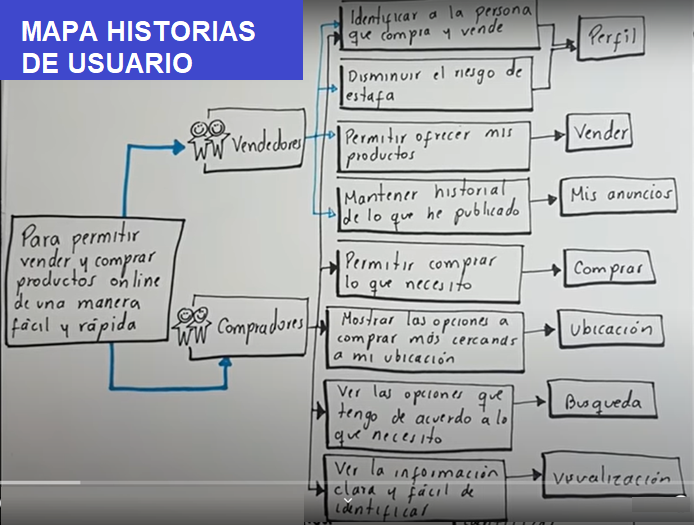 MAPA HISTORIAS
DE USUARIO
Para permitir
vender y comprar
productos online
de una manera
fácil y rápida
Vendedores
Compradores
Identificar a la persona
que compra y vende
Perfil
Disminuir el riesgo de
estafa
Permitir ofrecer mis
productos
Vender
Mantener historial
de lo que he publicado
Mis anuncios
Permitir comprar
lo que necesito
Comprar
Mostrar las opciones a
comprar más cercanas
a mi ubicación
Ubicación
Ver las opciones que
tengo de acuerdo a lo
que necesito
Busqueda
Ver la información
clara y fácil de
identificar
Visualización